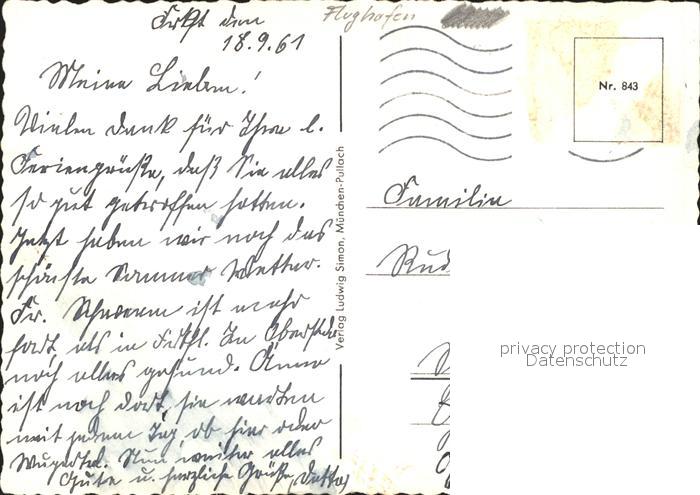 Frkft den
18.9.61
Meine Lieben!
Vielen Dank für Ihre l.
Feriengrüße, daß Sie alles
so gut getroffen hatten.
Jetzt haben wir noch das
schönste Sommer Wetter.
Fr. ist mehr
fort, als in Frkft. In
noch alles gesund. Änne
ist noch dort, sie warten
mit jedem Tag, ob hier oder
Nun weiter alles
Gute u. herzliche Grüße,
Verlag Ludwig Simon, München-Pullach
Flughafen
Nr. 843
Familie
Rud
privacy protection
Datenschutz